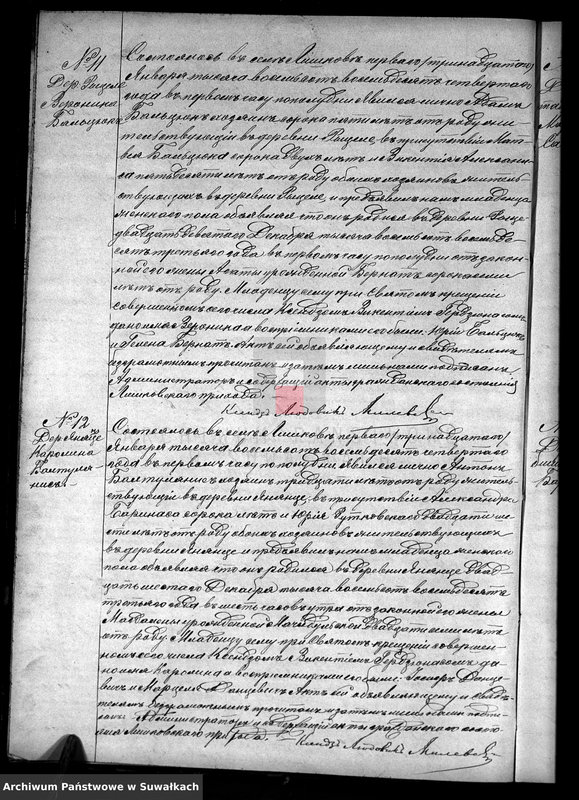 № 11
Дер. Рыцеле
Вероника
Бальцюкъ
Состоялось въ селѣ Лишковъ перваго /тринадцатаго/
Января тысяча восемьсотъ восемьдесятъ четвертаго
года въ первомъ часу пополудни. Явился лично Адамъ
Бальцюкъ хозяинъ сорока пяти лѣтъ отъ роду жи-
тельствующій въ деревнѣ Рыцеле, въ присутствіи Мат-
вѣя Бальцюка сорока двухъ лѣтъ и Викентія
пятьдесяти лѣтъ отъ роду обоихъ хозяиновъ житель-
ствующихъ въ деревнѣ Рыцеле, и предъявилъ намъ младенца
женскаго пола объявляя что онъ родился въ деревнѣ Рыце
двадцать девятаго Декабря тысяча восемьсотъ восемьде-
сятъ третьяго года въ первомъ часу пополудни отъ закон-
ной его жены Агаты урожденной Бернатъ сорока
лѣтъ отъ роду. Младенцу сему при святомъ крещеніи
совершенномъ сего числа Ксендзомъ Викентіемъ
дано имя Вероника а воспріемниками были: Юрій Бальцюкъ
и Елена Бернатъ. Актъ сей объявляющему и свидѣтелямъ
безграмотнымъ прочитанъ и затѣмъ нами подписанъ
Администраторъ и содержащій акты гражданскаго состоянія
Лишковскаго прихода.
Ксендзъ Людовикъ
№ 12
Дер. Янянце
Каролина
Состоялось въ селѣ Лишковъ перваго /тринадцатаго/
Января тысяча восемьсотъ восемьдесятъ четвертаго
года въ первомъ часу пополудни явился лично Антонъ
хозяинъ тридцати лѣтъ отъ роду житель-
ствующій въ деревнѣ Янянце, въ присутствіи Александра
сорока лѣтъ и Юрія Рутковскаго двадцати ше-
сти лѣтъ отъ роду обоихъ хозяиновъ жительствующихъ
въ деревнѣ Янянце и предъявилъ намъ младенца женскаго
пола объявляя что онъ родился въ деревнѣ Янянце двад-
цать шестаго Декабря тысяча восемьсотъ восемьдесятъ
третьяго года въ шесть часовъ утра отъ законной его жены
урожденной двадцати лѣтъ
отъ роду. Младенцу сему при Святомъ крещеніи совершен-
номъ сего числа Ксендзомъ Викентіемъ да-
но имя Каролина а воспріемниками были:
и Марцеля Актъ сей объявляющему и свидѣ-
телямъ безграмотнымъ прочитанъ и затѣмъ нами подпи-
санъ. Администраторъ и содержащій акты гражданскаго состоя-
нія Лишковскаго прихода.
Ксендзъ Людовикъ
Archiwum Państwowe w Suwałkach